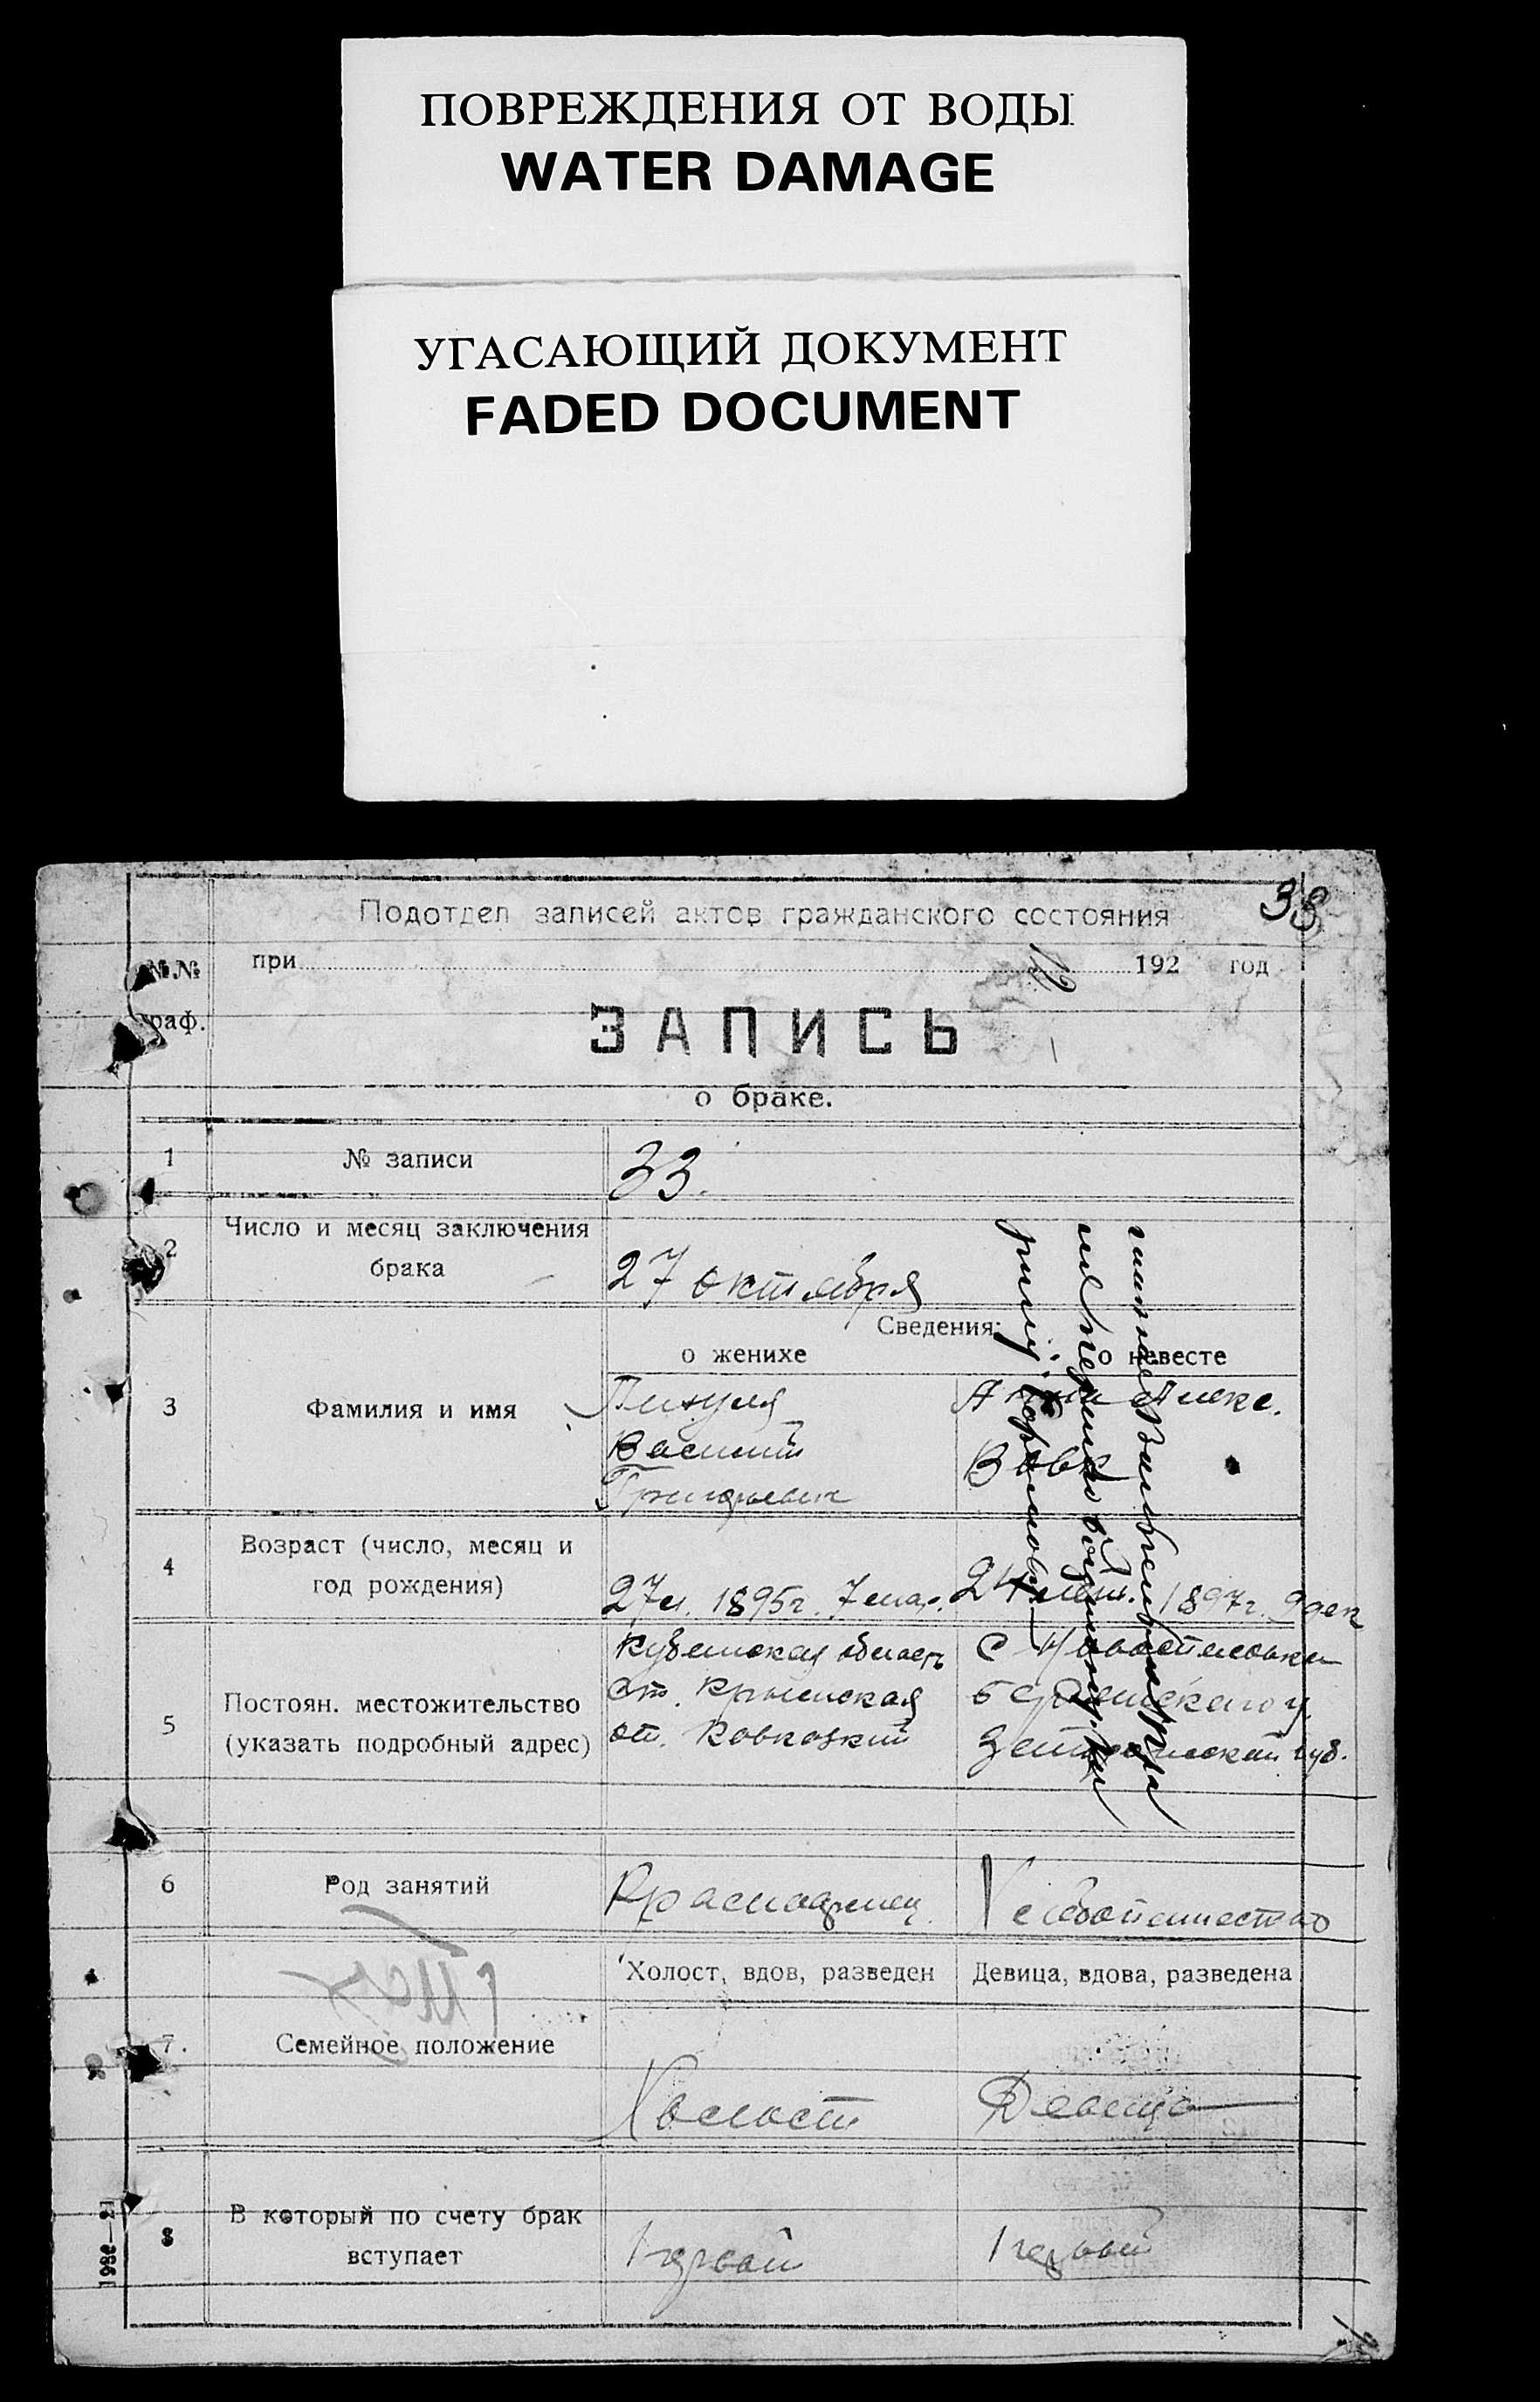 ПОВРЕЖДЕНИЯ ОТ ВОДЫ
WATER DAMAGE
УГАСАЮЩИЙ ДОКУМЕНТ
FADED DOCUMENT
38
Подотдел записей актов гражданского состояния
№№ при 192 год
граф.
ЗАПИСЬ
о браке.
1 № записи 33.
2 Число и месяц заключения
брака
27 октября
Сведения:
о женихе о невесте
3 Фамилия и имя
Василий
Григорьевич
Анна Алекс.
Вовк
4 Возраст (число, месяц и
год рождения)
27 л. 1895 г. 7 мар. 24 лет. 1897 г. 9 дек
5 Постоян. местожительство
(указать подробный адрес)
Кубанская область
ст. Крымская
от. Кавказкий
с Новоспасовка
Бердянского у.
губ.
6 Род занятий Красноармеец Хлебопашество
Холост, вдов, разведен Девица, вдова, разведена
7. Семейное положение
Холост Девица
8 В который по счету брак
вступает
Первый Первый